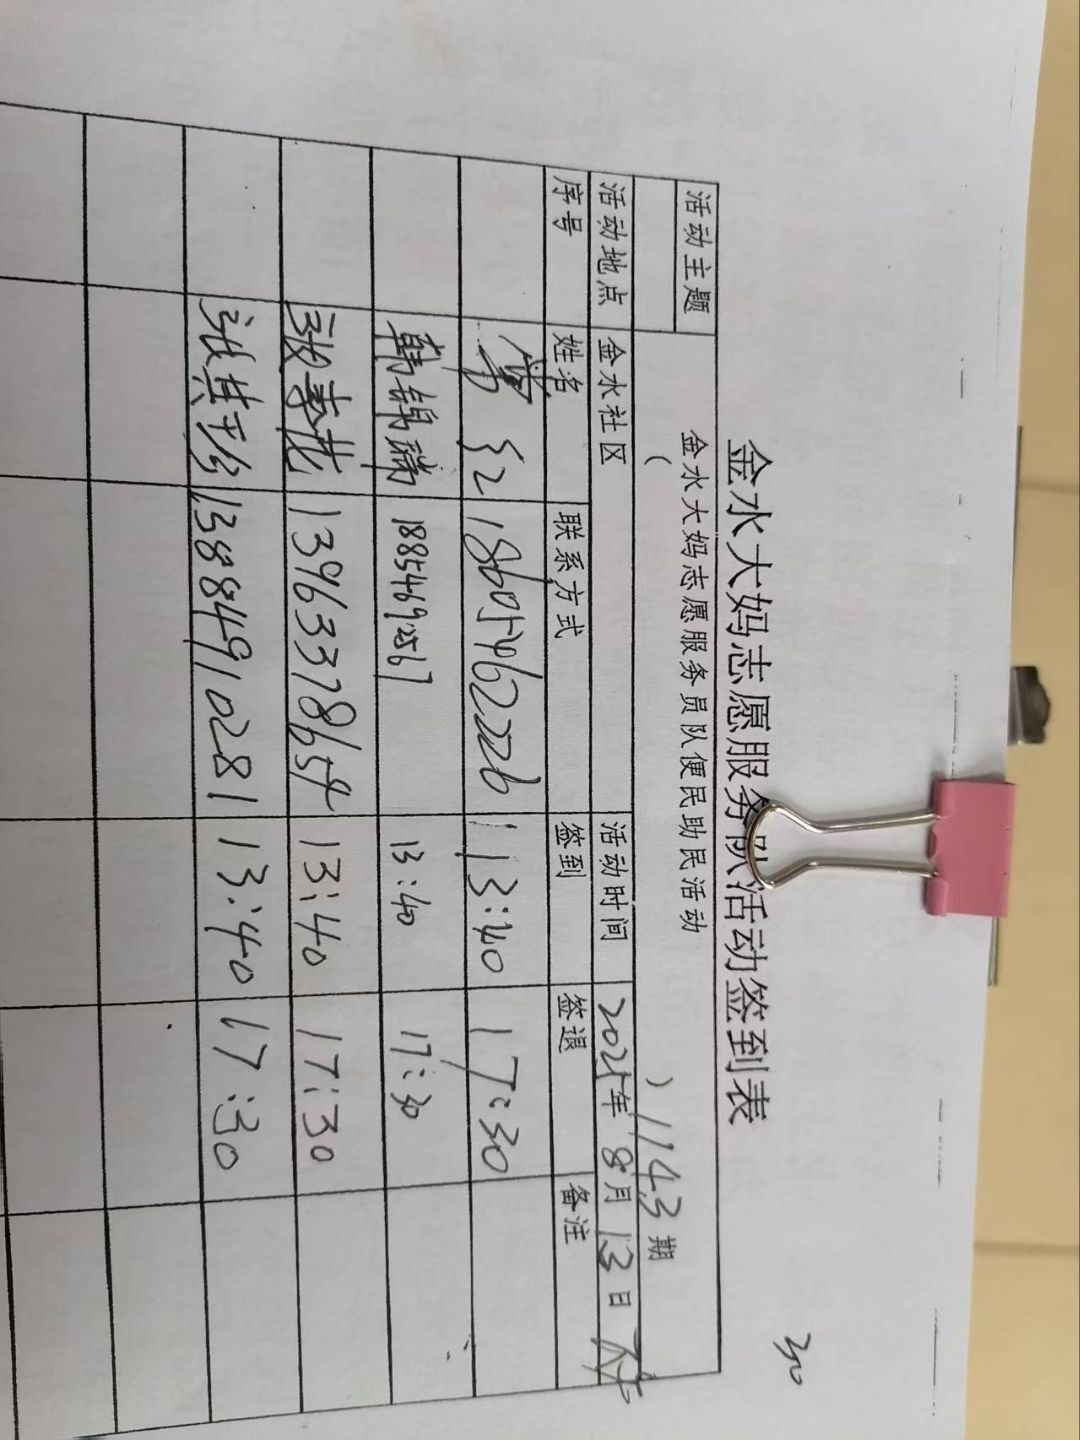 金水大妈志愿服务队活动签到表
活动主题 金水大妈志愿服务员队便民助民活动
( ) 1143期
活动地点 金水社区 活动时间 年 8月 13日
序号 姓名 联系方式 签到 签退 备注
18605462226 13:40 17:30
韩锦瑞 18854692567 13:40 17:30
13963378659 13:40 17:30
13884910281 13:40 17:30